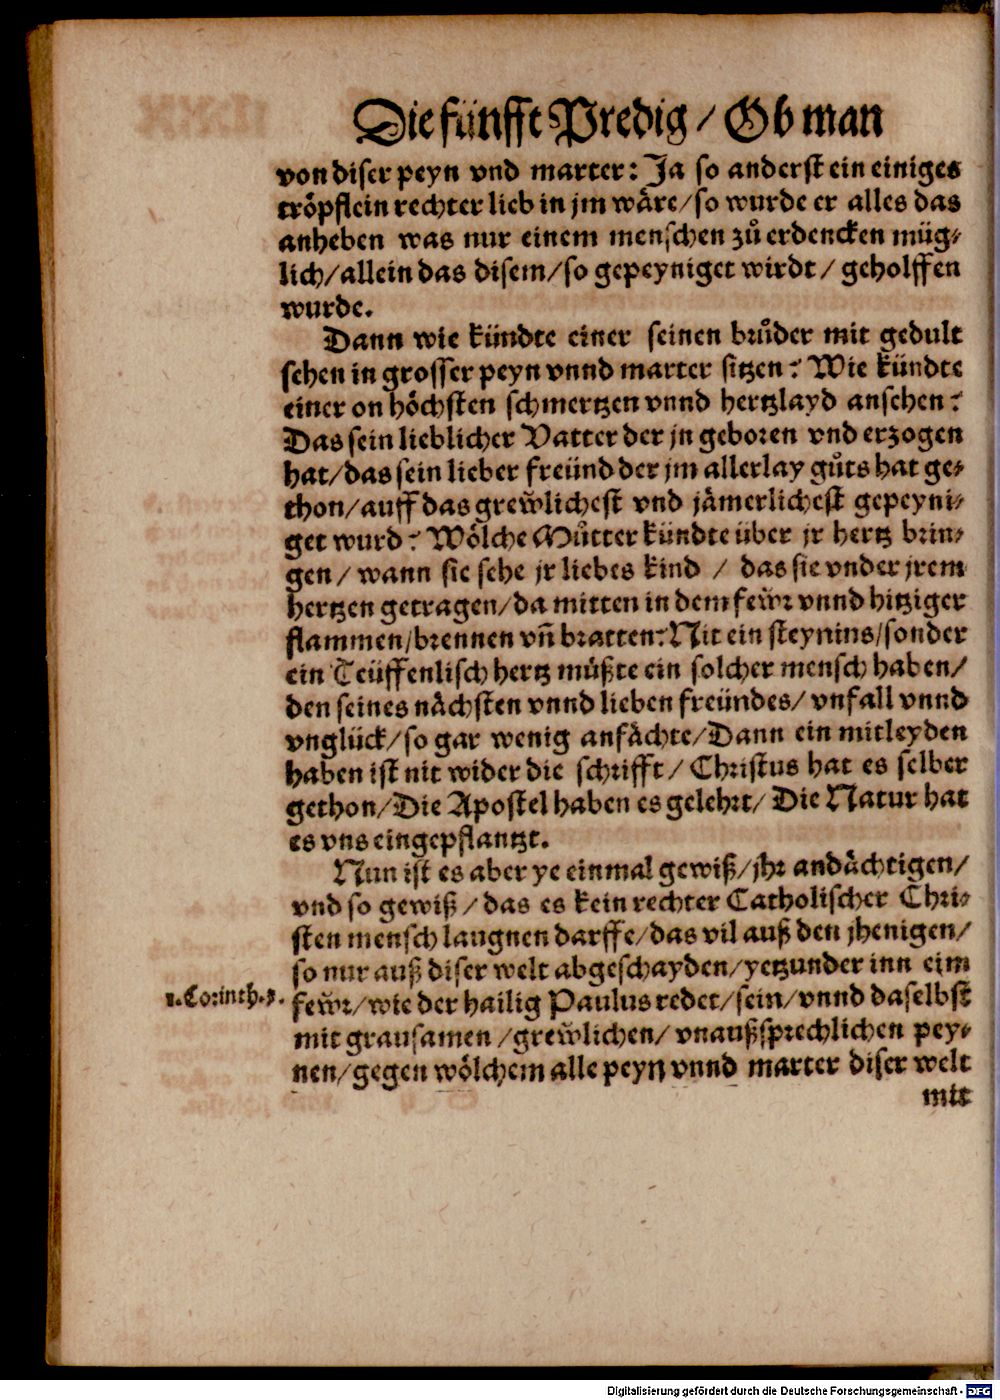 Die fünfft Predig / Ob man
von diser peyn vnd marter: Ja so anderst ein einiges
tröpflein rechter lieb in jm wäre/so wurde er alles das
anheben was nur einem menschen zů erdencken müg⸗
lich/allein das disem/so gepeyniget wirdt/ geholffen
wurde.
Dann wie kündte einer seinen brůder mit gedult
sehen in grosser peyn vnnd marter sitzen? Wie kündte
einer on höchsten schmertzen vnnd hertzlayd ansehen?
Das sein lieblicher Vatter der jn geboren vnd erzogen
hat/das sein lieber freünd der jm allerlay gůts hat ge⸗
thon/auff das grewlichest vnd jämerlichest gepeyni⸗
get wurd? Wölche Můtter kündte über jr hertz brin⸗
gen/ wann sie sehe jr liebes kind / das sie vnder jrem
hertzen getragen/da mitten in dem fewr vnnd hitziger
flammen/brennen vñ bratten? Nit ein steynins/sonder
ein Teüffenlisch hertz můßte ein solcher mensch haben/
den seines nächsten vnnd lieben freündes/ vnfall vnnd
vnglück/so gar wenig anfächte/Dann ein mitleyden
haben ist nit wider die schrifft/ Christus hat es selber
gethon/Die Apostel haben es gelehrt/ Die Natur hat
es vns eingepflantzt.
Nun ist es aber ye einmal gewiß/jhr andächtigen/
vnd so gewiß/das es kein rechter Catholischer Chri⸗
sten mensch laugnen darffe/das vil auß den jhenigen/
so nur auß diser welt abgeschayden/yetzunder inn eim
1. Corinth. 3.
fewr/wie der hailig Paulus redet/sein/vnnd daselbst
mit grausamen /grewlichen/ vnaußsprechlichen pey⸗
nen/gegen wölchem alle peyn vnnd marter diser welt
mit
Digitalisierung gefördert durch die Deutsche Forschungsgemeinschaft - DFG